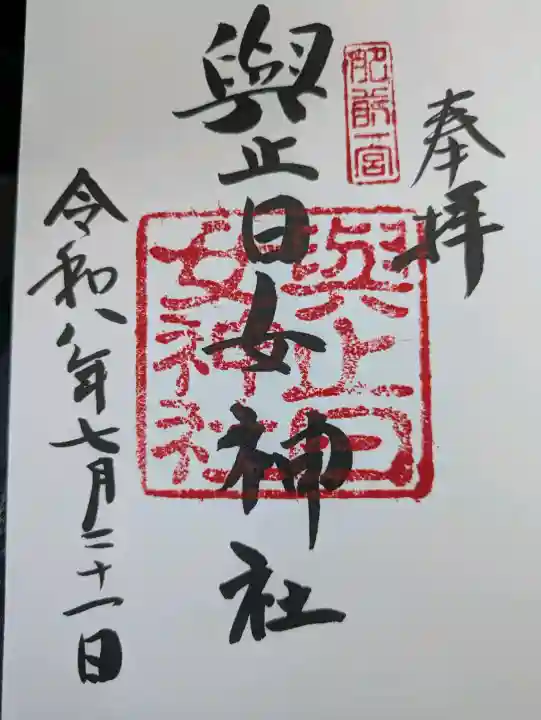 奉拝
肥前一宮
與止日女神社
與止日
女神社
令和八年七月二十一日